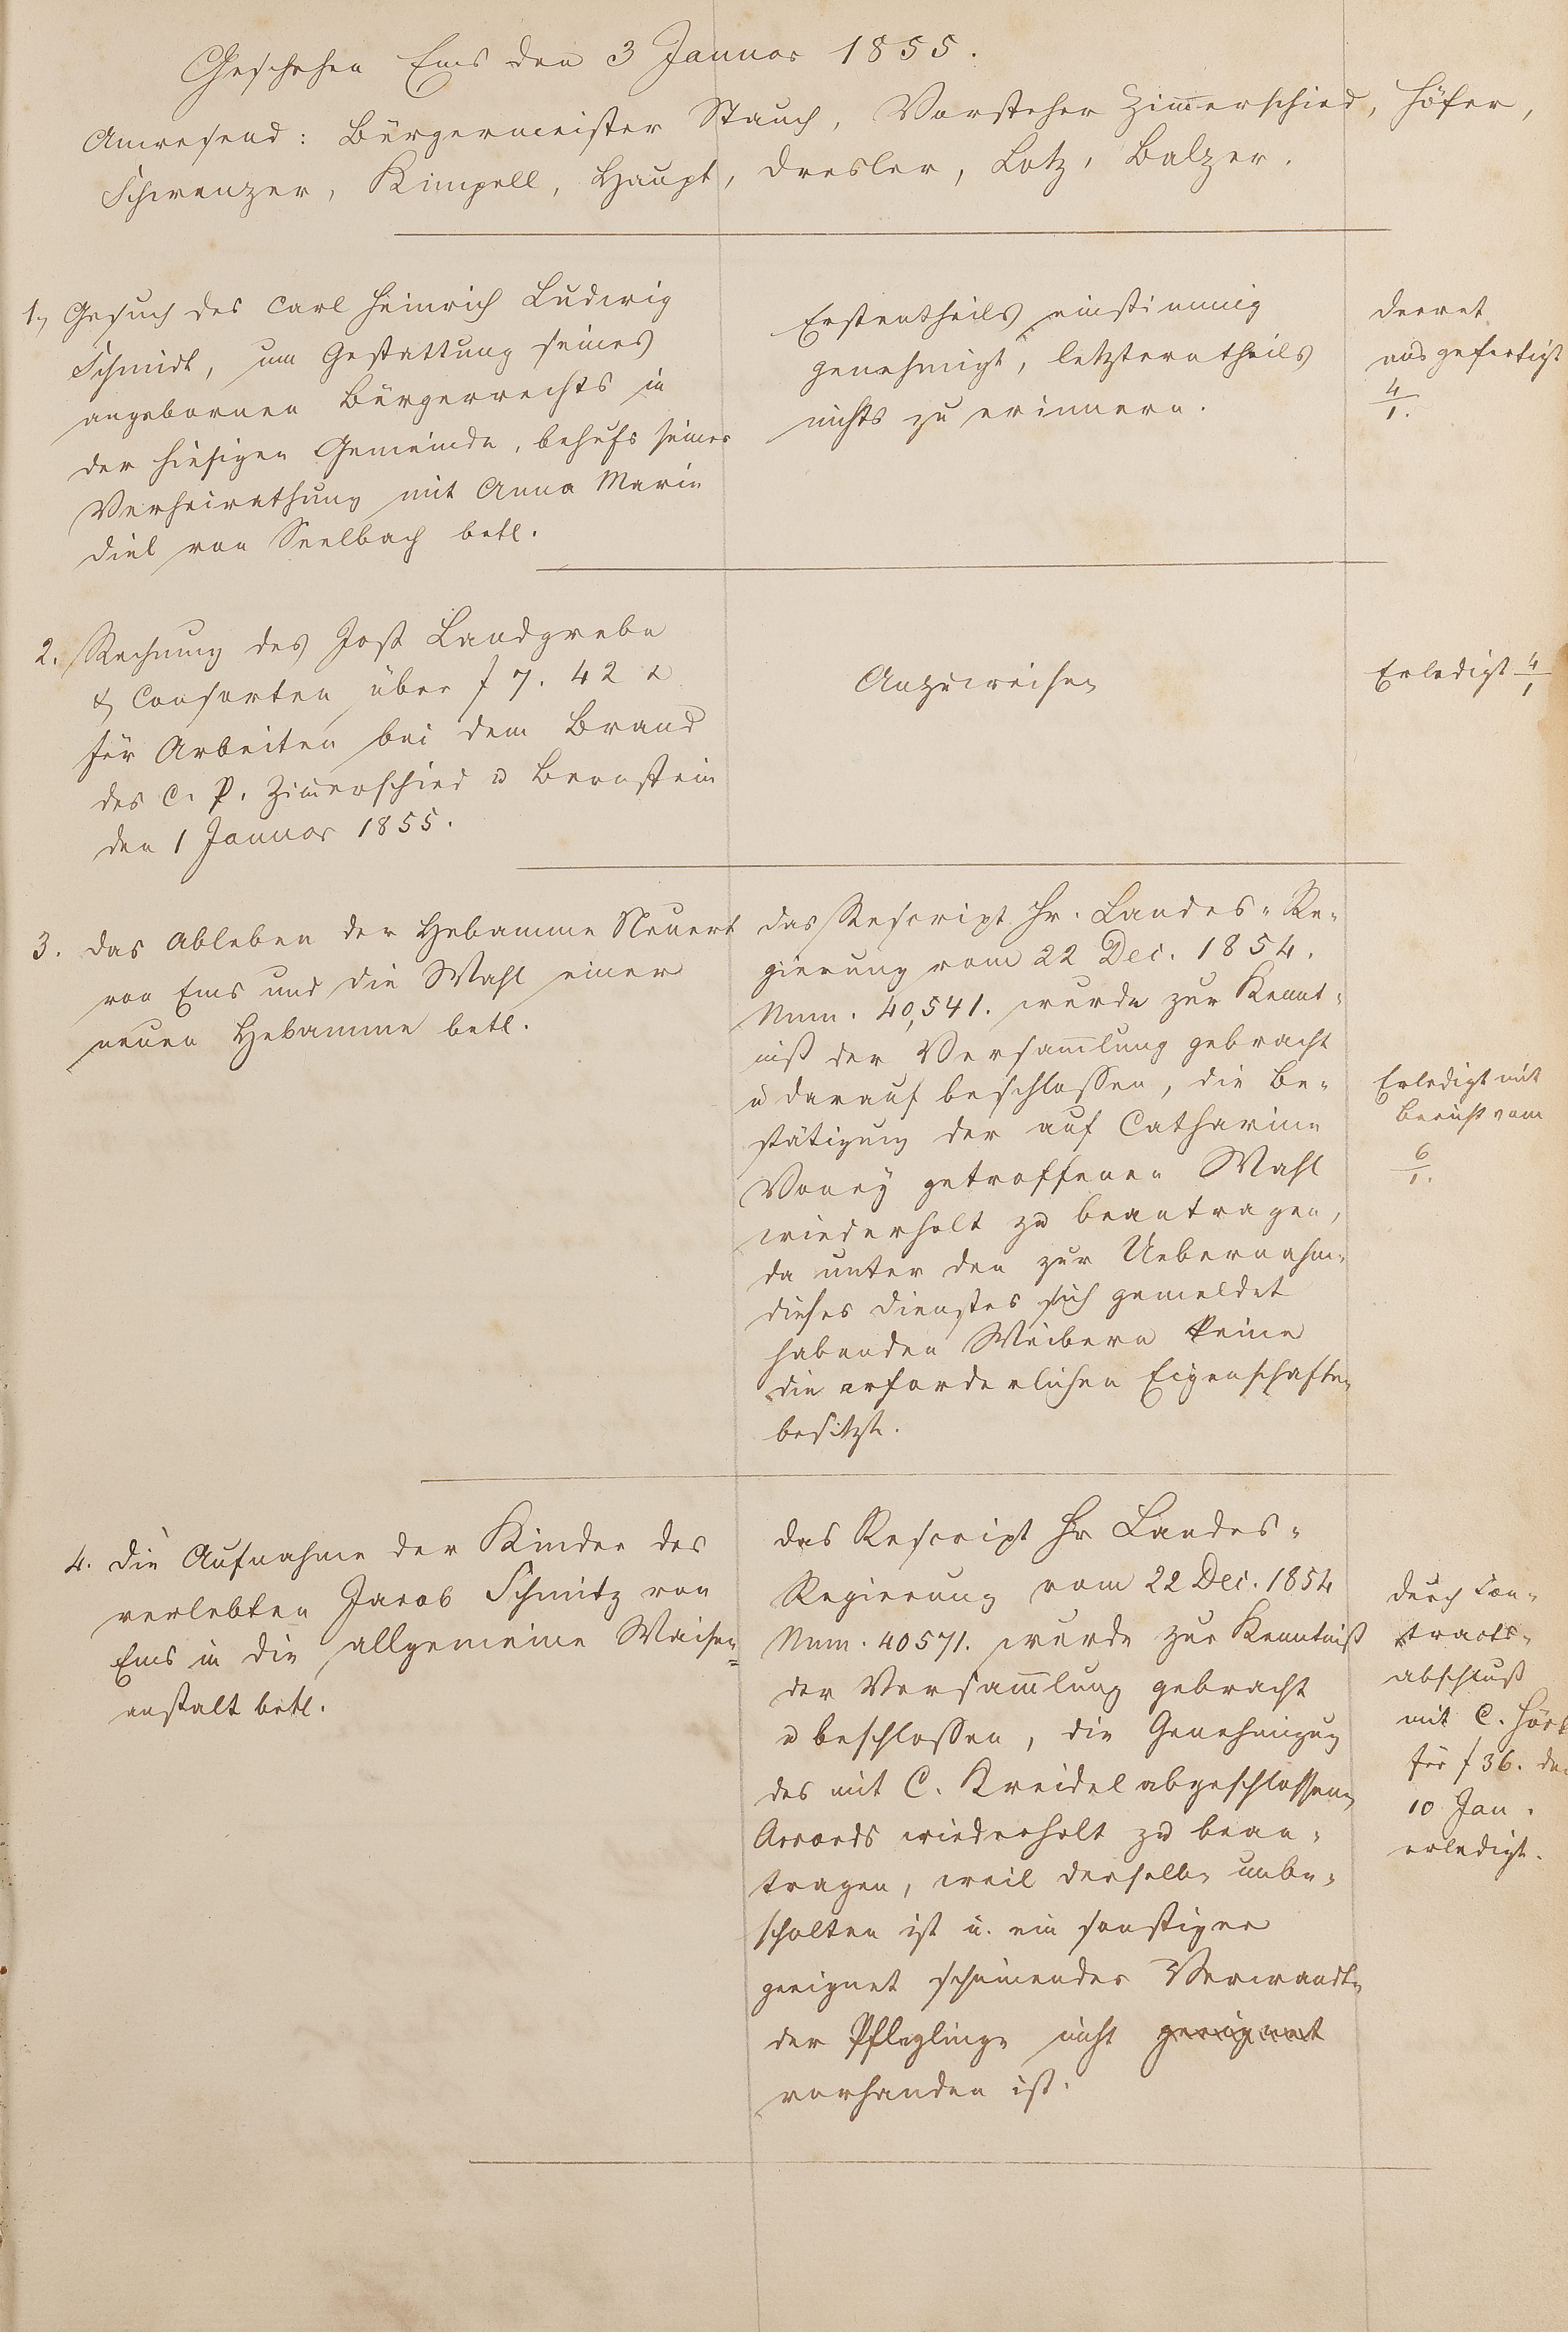 Geschehen Ems den 3 Januar 1855.
Anwesend: Bürgermeister Stauch, Vorsteher Zim̄erschied, Höfer,
Schwenzer, Kimpell, Haupt, Dresler, Lotz, Balzer.
1, Gesuch des Carl Heinrich Ludwig
Schmidt, um Gestattung seines
angebornen Bürgerrechts in
der hiesigen Gemeinde, behufs seiner
Verheirathung mit Anna Maria
Diel von Seelbach betl.
Erstentheils einstimmig
genehmigt, letzterntheils
nichts zu erinnern.
Decret
ausgefertigt
4/1.
2. Rechnung des Jost Landgrebe
& Consorten über f 7. 42 x
für Arbeiten bei dem Brand
des C. P. Zim̄erschied u Bernstein
den 1 Januar 1855.
Anzuweisen
Erledigt 4/1
3. Das Ableben der Hebamme Neuert
von Ems und die Wahl einer
neuen Hebamme betl.
Das Rescript Hr. Landes-Re-
gierung vom 22 Dec. 1854.
Num. 40,541. wurde zur Kennt-
niß der Versam̄lung gebracht
u darauf beschlossen, die Be-
stätigung der auf Catharine
Voney getroffenen Wahl
wiederholt zu beantragen,
da unter den zur Uebernahme
dieses Dienstes sich gemeldet
habenden Weibern keine
die erforderlichen Eigenschaften
besitzt.
Erledigt mit
Bericht vom
6/1.
4. Die Aufnahme der Kinder des
verlebten Jacob Schmitz von
Ems in die allgemeine Waisen-
anstalt betl.
Das Rescript Hr Landes-
Regierung vom 22 Dec. 1854
Num. 40571. wurde zur Kenntniß
der Versam̄lung gebracht
u beschlossen, die Genehmigung
des mit C. Kreidel abgeschlossenen
Accords wiederholt zu bean-
tragen, weil derselbe unbe-
scholten ist u. ein sonstiger
geeignet scheinender Verwandte
der Pfleglinge nicht geeignet
vorhanden ist.
Durch Con-
tracts-
abschluß
mit C.
für f 36. den
10 Jan.
erledigt.